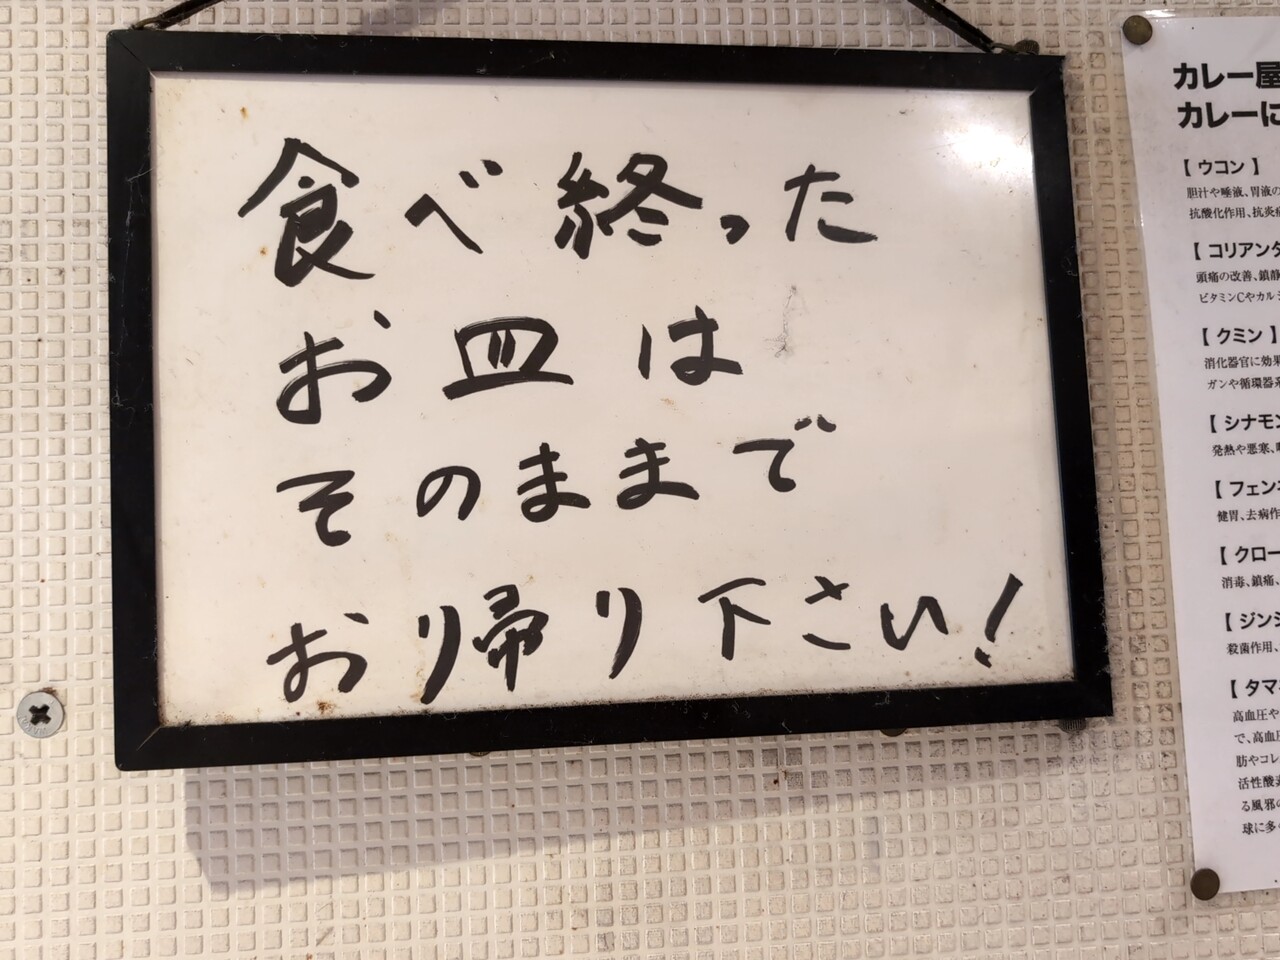 食べ終った
お皿は
そのままで
おり帰り下さい!
カレー屋
カレーに
【 ウコン 】
胆汁や唾液、胃液の
抗酸化作用、抗炎
【 コリアンダ
頭痛の改善、鎮静
ビタミンCやカル
【 クミン 】
消化器官に効果
ガンや循環器系
【 シナモン
発熱や悪寒、
【 フェン
健胃、去病作
【 クロー
消毒、鎮痛、
【 ジンジ
殺菌作用、
【 タマ
高血圧や
で、高血圧
肪やコレ
活性酸素
る風邪の
球に多